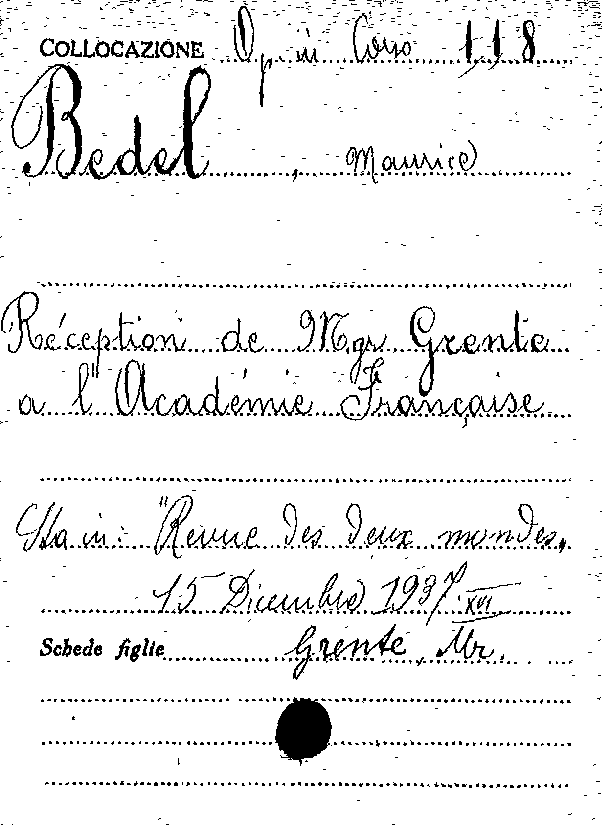 COLLOCAZIONE Op. in Corso 118
Bedel, Maurice
Réception de Mgr Grente
a l'Académie Française
Sta in: "Revue des deux mondes,
15 Dicembre 1937. XVI
Schede figlie Grente, Mr.